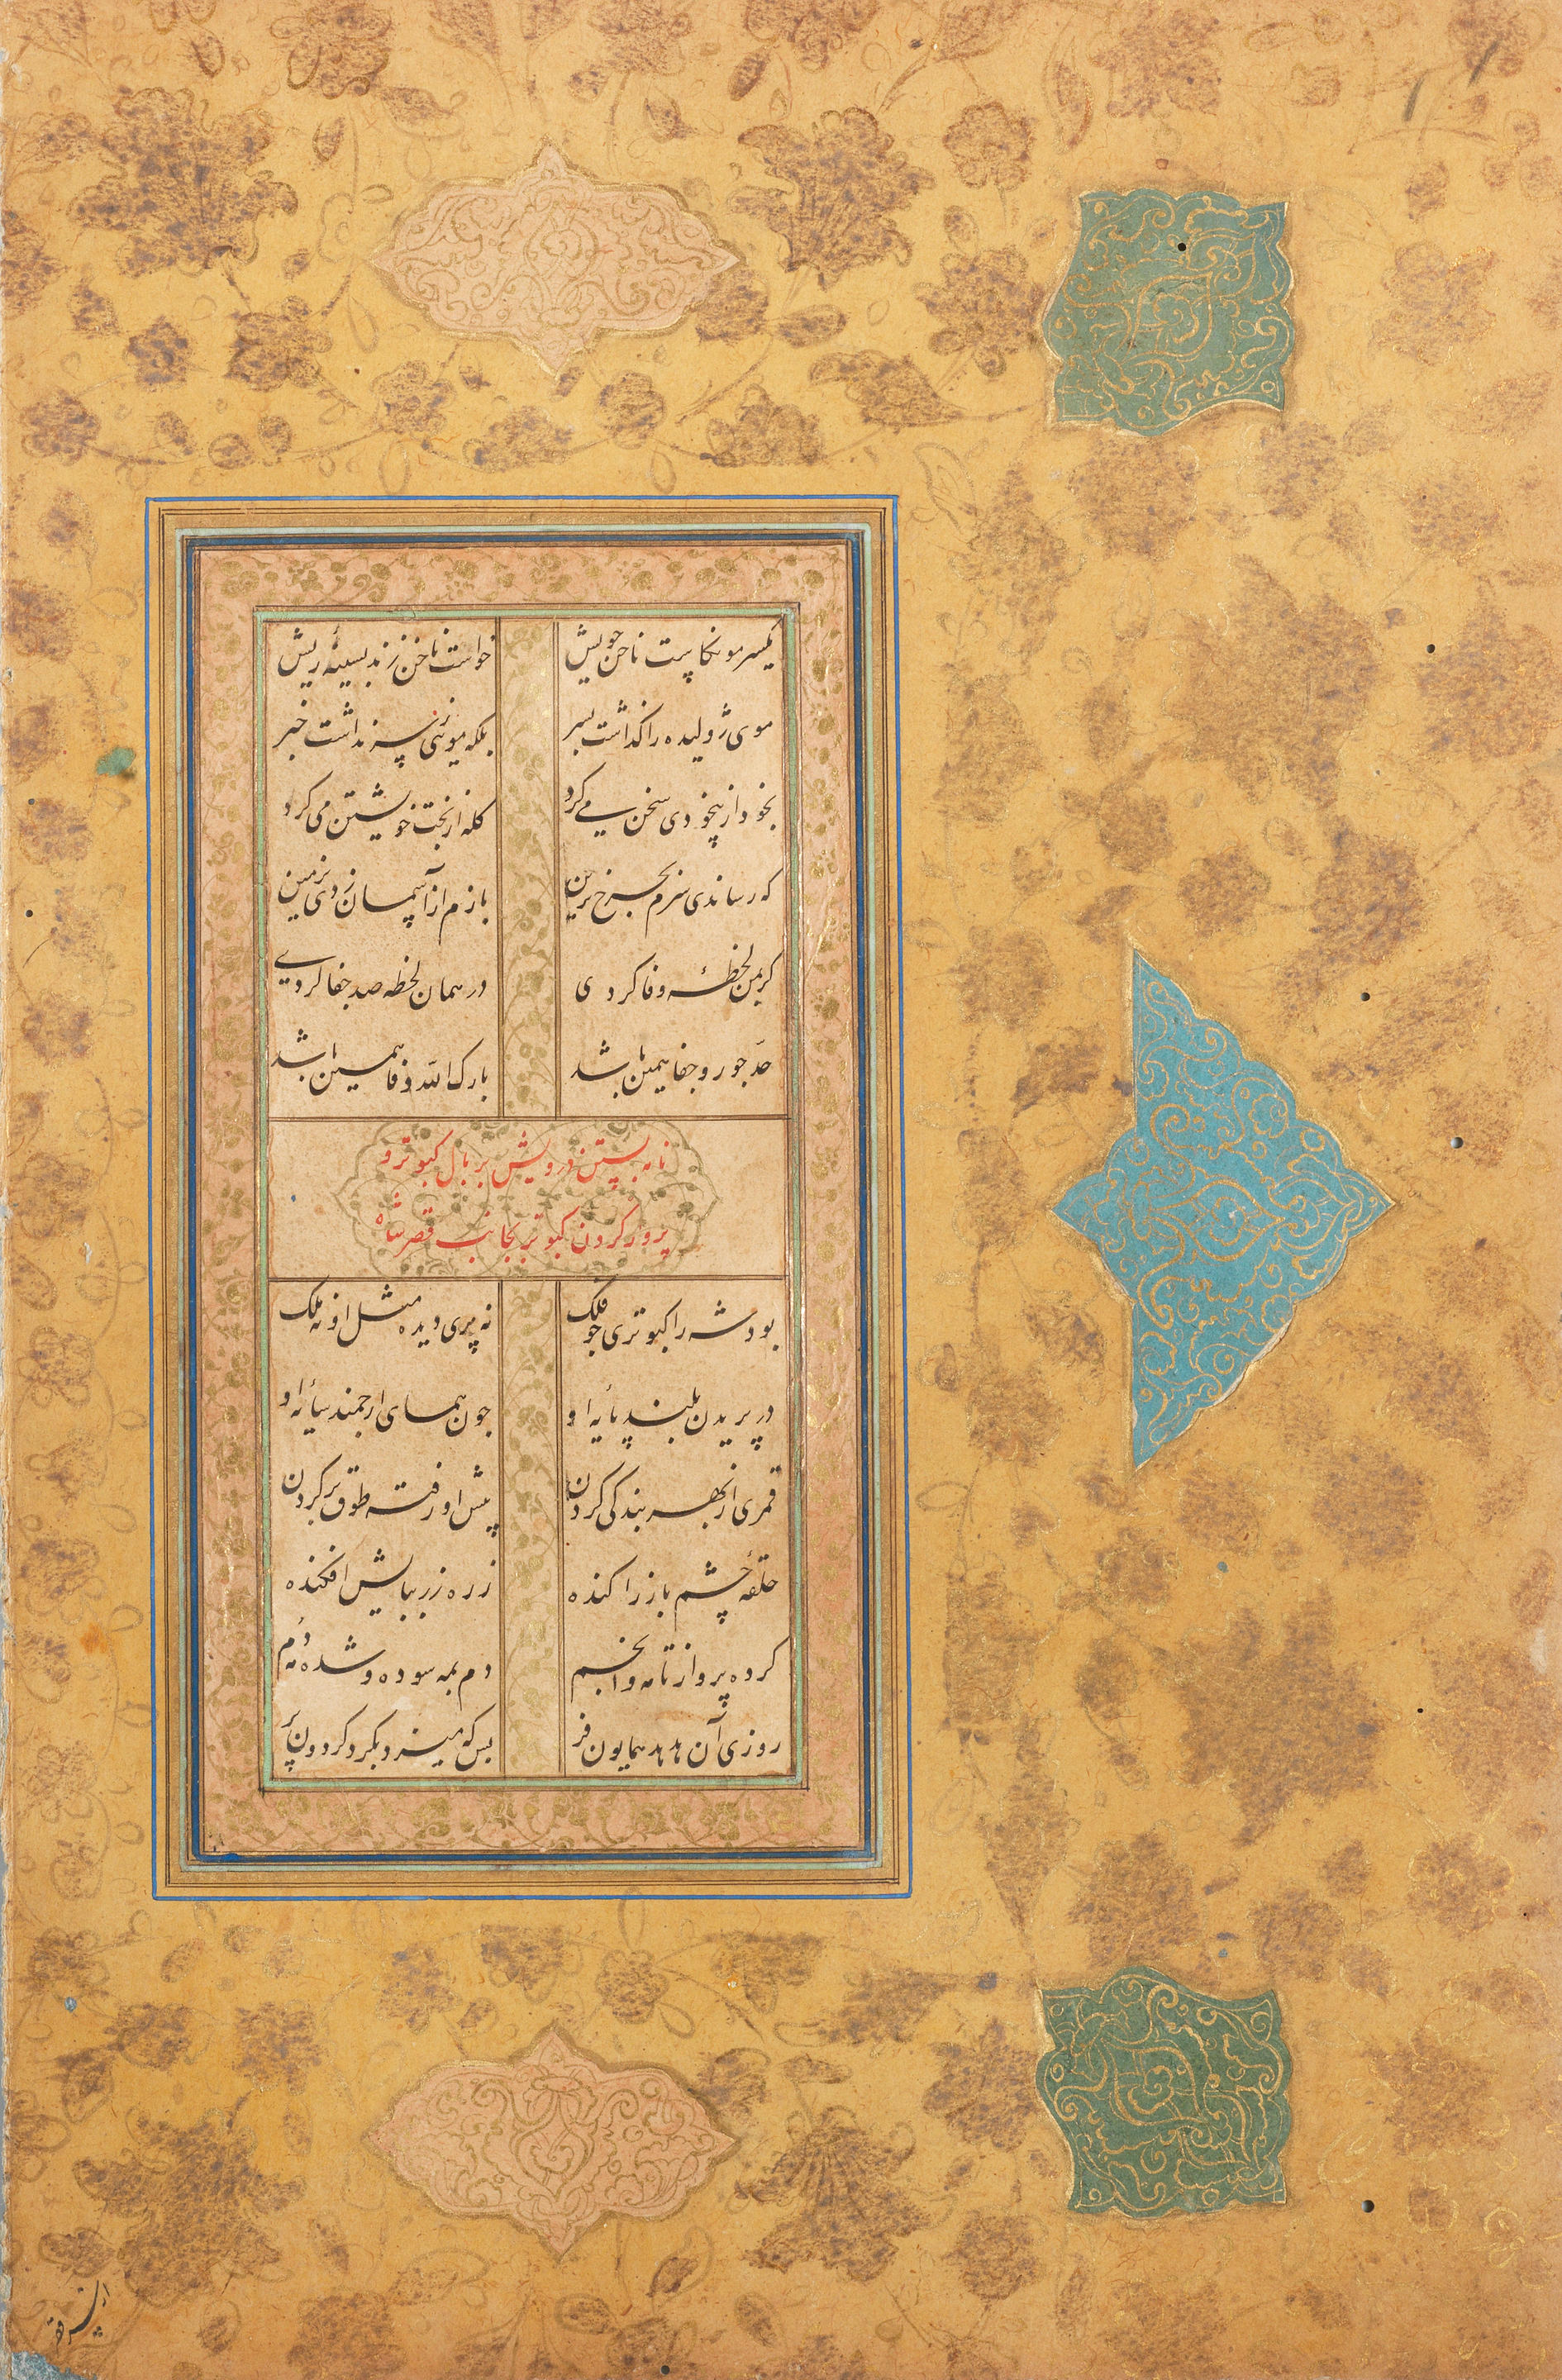 یکسر مو نکاست ناخن خویش خواست ناخن زند بسینهٔ ریش
موی ژولیده را گذاشت بسر بلکه مویی ز سر نداشت خبر
بخود از بیخودی سخن می کرد گله از بخت خویشتن می کرد
که رساندی سرم بچرخ برین بازم از آسمان زدی بزمین
گر بمن لحظهٔ وفا کردی در همان لحظه صد جفا کردی
حد جور و جفا همین باشد بارک الله وفا همین باشد
نامه بستن درویش بر بال کبوتر و
کردن کبوتر بجانب قصر شاه
بود شه را کبوتری چو فلک نه پری دیده مثل او نه ملک
در پریدن بلند پایهٔ او چون همای ارجمند سایهٔ او
قمری از بهر بندگی کردن پیش او رفته طوق بر گردن
حلقهٔ چشم باز را کنده زره زر بپایش افکنده
کرده پرواز تا مه و انجم دم بمه سوده و شده مه دم
روزی آن هدهد همایون فر بس که میزد بگرد گردون پر